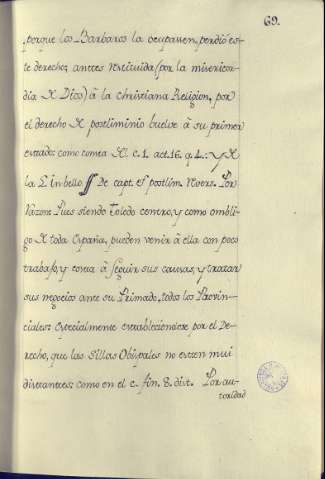 69.
porque los Barbaros la ocupassen, perdiò es-
te derecho; antes restituida (por la misericor-
dia de Dios) à la christiana Religion, por
el derecho de postliminio buelve à su primer
estado: como consta del c. 1. act. 16. q. 4.: y de
la L. in bello ff De capt. et postlim. revers. Por
razon: Pues siendo Toledo centro, y como ombli-
go de toda España, pueden venir à ella con poco
trabajo, y costa à seguir sus causas, y tratar
sus negocios ante su Primado, todos los Provin-
ciales: especialmente estableciendose por el De-
recho, que las Sillas Obispales no esten mui
distantes: como en el c. fin. 8. dist. Por au-
toridad